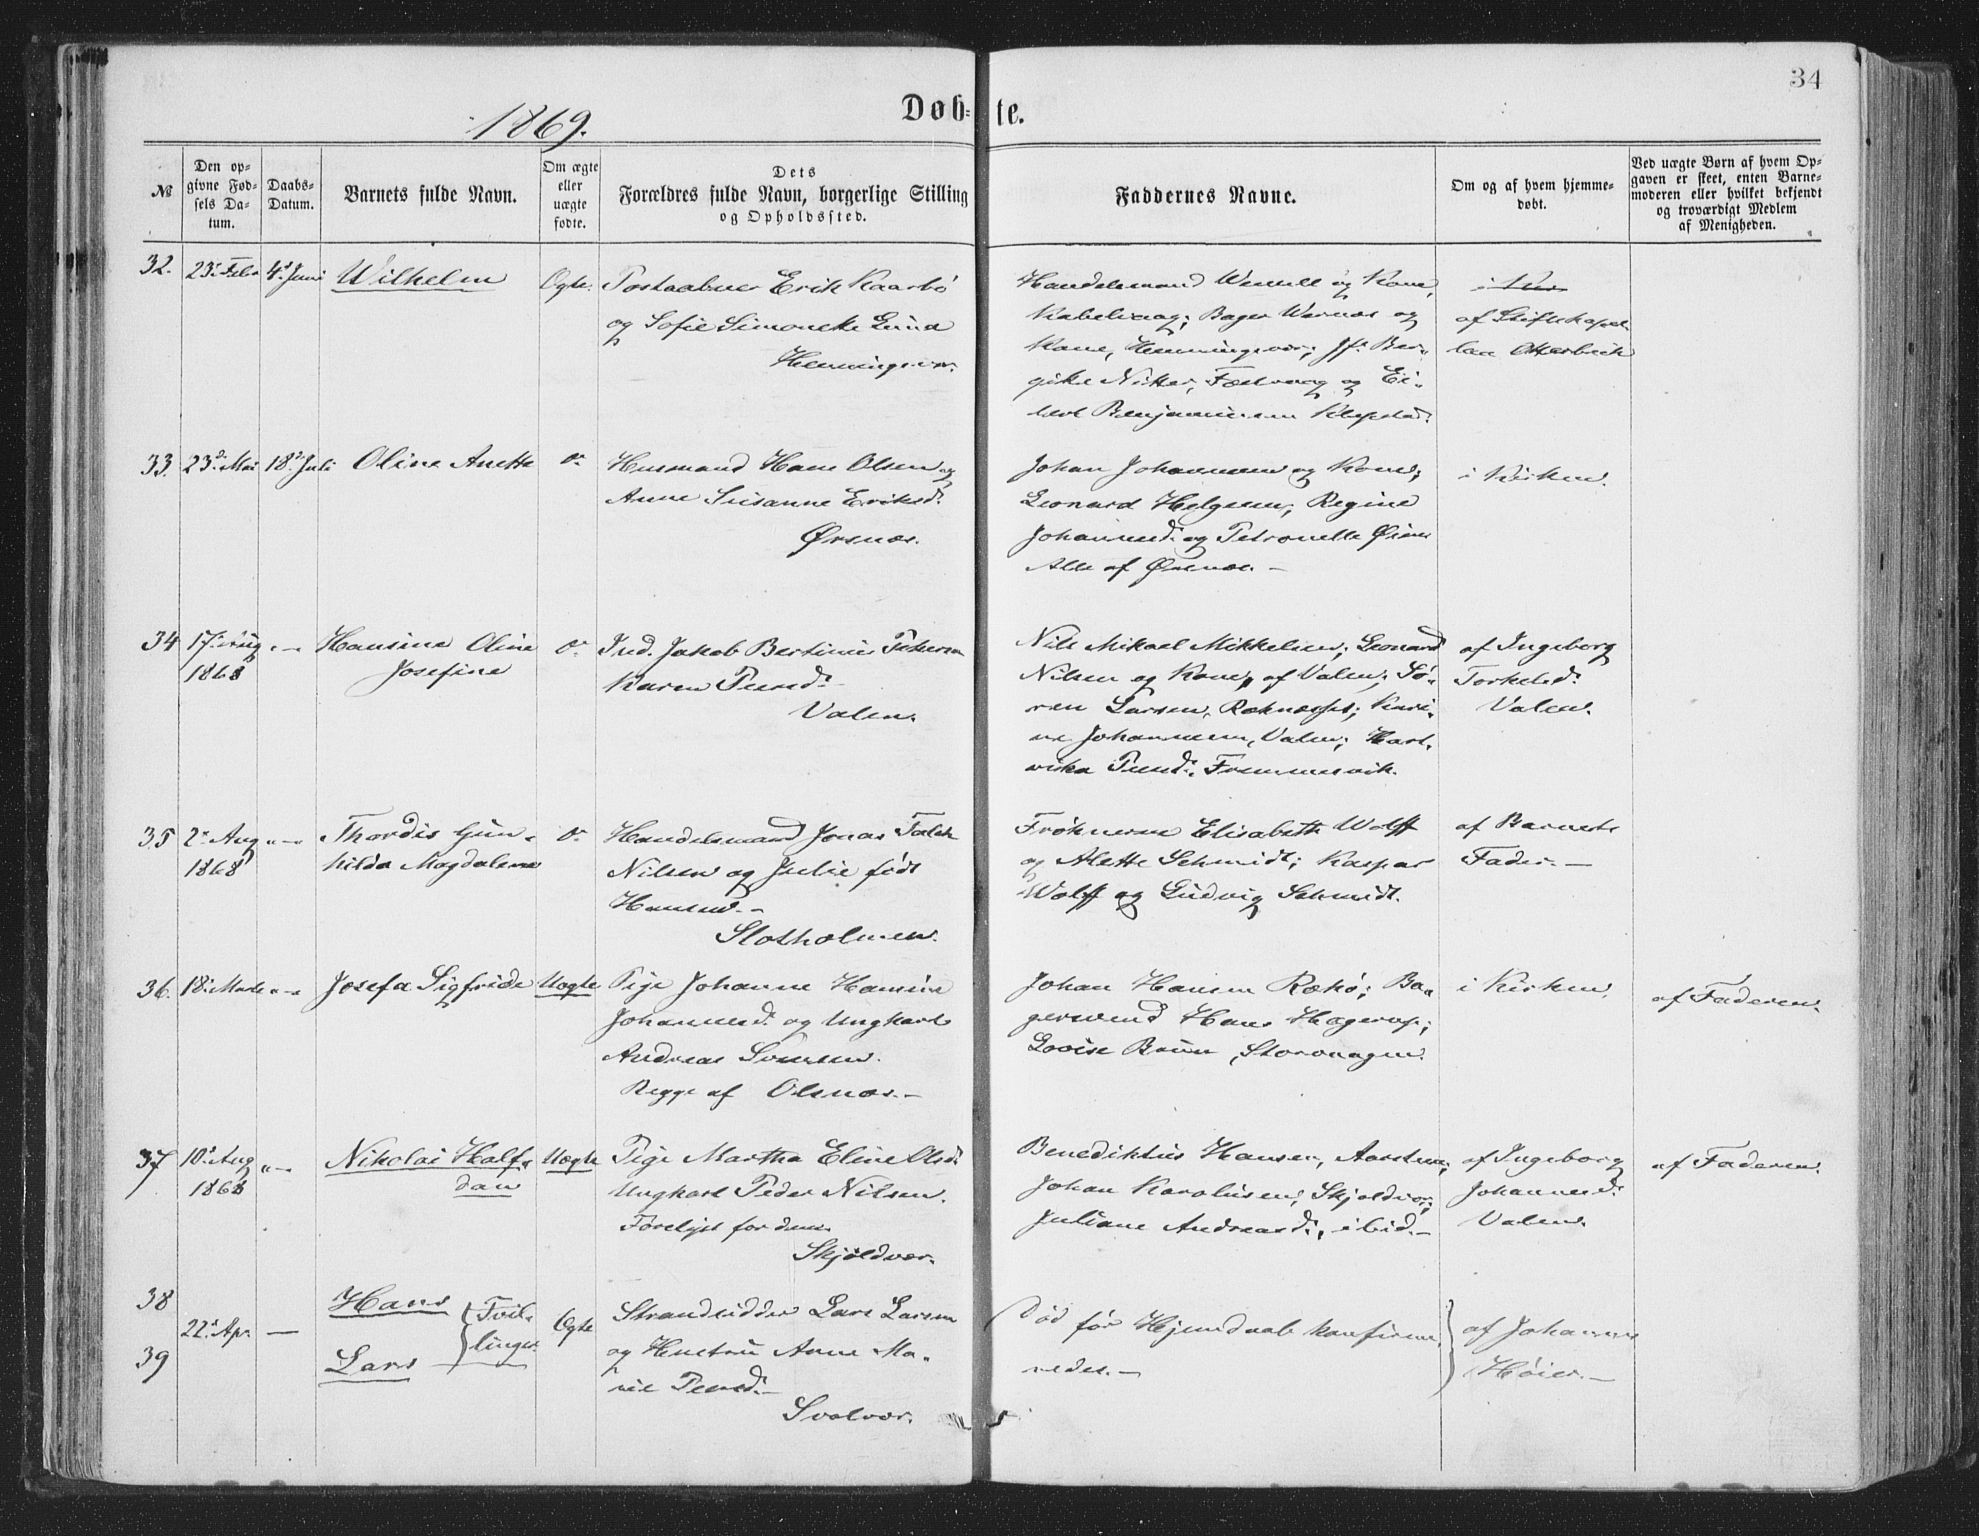 34
1869.
Døb-te.
№
Den op-
givne Fød-
sels Da-
tum.
Daabs-
Datum.
Barnets fulde Navn.
Om ægte
eller
uægte
fødte.
Dets
Forældres fulde Navn, borgerlige Stilling
og Opholdssted.
Faddernes Navne.
Om og af hvem hjemme-
døbt.
Ved uægte Børn af hvem Op-
gaven er skeet, enten Barne-
moderen eller hvilket bekjendt
og troværdigt Medlem
af Menigheden.
32. 23. Febr 4d Juni Wilhelm Ægte. Postaabner Erik Kaarbø
og Sofie Simoneke Lund
Henningsvær.
Handelsmand Wenell og Kone,
Kabelvaag; Bager Wernes og
Kone, Henningsvær; Jf. Ber-
gike Nitter, Festvaag og Ei-
lert Benjaminsen Klepstad.
af Stiftskapel-
lan Otterbech
33. 23d Mai 18d Juli Oline Anette do Husmand Hans Olsen og
Anne Susanne Eriksd.
Ørsnæs.
Johan Johannesen og Kone;
Leonard Helgesen; Regine
Johannesd. og Petronelle
Alle af Ørsnæs. -
i Kirken.
34 17. Aug "-" Hansine Oline do Ind. Jakob Bertinus Petersen
1868 Josefine
Karen Peersd.
Valen.
Nils Mikael Mikkelsen; Leonard
Nilsen og Kone, af Valen; Sø-
ren Larsen, Reknesset; Kari-
ne Johannesen, Valen; Hart-
vika Peersd. Fremmesvik.
af Ingeborg
Torkelsd.
Valen.
35 2. Aug "-" Thordis Gun- do Handelsmand Jonas Falch
1868 hilda Magdalena
Nilsen og Julie født
Hansen. -
Slotholmen.
Frøknerne Elisabeth Wolff
og Alette Schmidt; Kaspar
Wolff og Ludvig Schmidt.
af Barnets
Fader. -
36. 18. Marts "-" Josefa Sigfride Uægte Pige Johanne Hansine
Johannesd. og Ungkarl
Andreas Svensen.
Begge af Olsnæs. -
Johan Hansen Rækø; Ba-
gersvend Hans Hagerup;
Lovise Bruun, Storvaagen.
i Kirken.
af Faderen.
37 10. Aug "-" Nikolai Half- Uægte Pige Martha Eline Olsd.
1868 dan
Ungkarl Peder Nilsen.
Forelyst for dem.
Skjoldvær.
Benediktus Hansen, Aarstran;
Johan Karoliusen, Skjoldvær;
Juliane Andreasd., ibid. -
af Ingeborg
Johannesd.
Valen.
af Faderen.
38
39
22. Apr. — Hans
Lars
Tvil-
linger.
Ægte
Strandsidder Lars Larsen
og Hustru Anne Ma-
rie Peersd. -
Svolvær.
Død før Hjemdaab konfirme-
redes. -
af Johanne
Høier. -